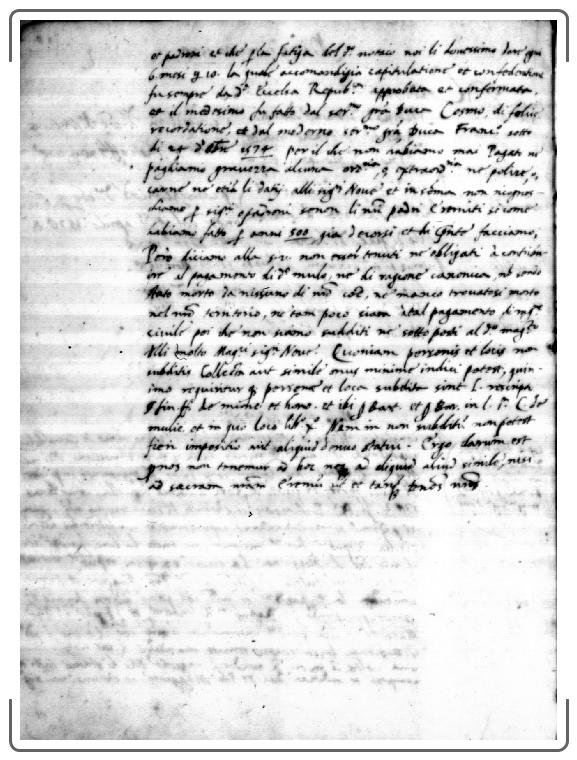 et padroni et che p la fatiga del d.º notaio noi li donassimo dare qui
6. mesi q 10. la quale accomandigia capitulatione et confederatione
fu sempre da d.ª Eccelsa Repub.ca approbata et confermata,
et il medesimo fu fatto dal ser.mo grã Duca Cosmo, di felice
recordatione, et dal moderno ser.mo grã Duca Franc.º sotto
di 24 d'8bre 1574 per il che non habbiamo mai Pagato ne
paghiamo gravezza alcuna ord.ria, o extraord.ria ne polize,
carne ne etiã li datij alli sig.ri Nove et insõma non ricognos-
chiamo p sig.ri o padroni se non li nrĩ padri Eremiti si come
habiamo fatto p anni 500 già decorsi et di cõnte facciamo,
Però diciamo alla S.V. non esser tenuti ne obligati a contribu-
ire al pagamento di d.º mulo, ne di ragione canonica, ne sendo
stato morto da nissuno di nrĩ coĩe, ne manco trovatosi morto
nel nrõ territorio, ne tam poco siam a tal pagamento di rag.ne
civile poi che non siamo subditi ne sotto posti al d.º mag.to
delli molto Mag.ci sig.ri Nove. Quoniam personis et locis non
subditis Collectã aut simile onus minime indici potest, quin-
imo requiritur q personę et loca subdita sint l. rescripta
§ fin ff. de mune. et hono. et ibi p Bart. et p Bar. in l. p.ª C. de
mulie. et in quo loco lib. xº Nam in non subditis non potest
fieri impositio aut aliquid denuo statui. Ergo datum est
quos non tenemur ad hoc neq ad aliquid aliud simile, nisi
ad sacram nrãm Eremũ